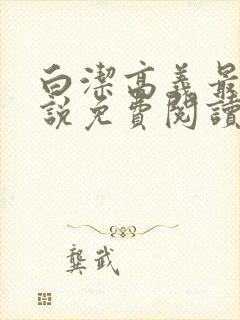 白潔高義最
說免費閱讀
龔武